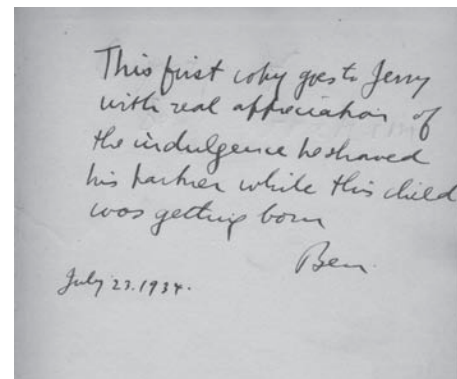 This first copy goes to Jerry
with real appreciation of
the indulgence he showed
his partner while this child
was getting born
Ben
July 23. 1934.